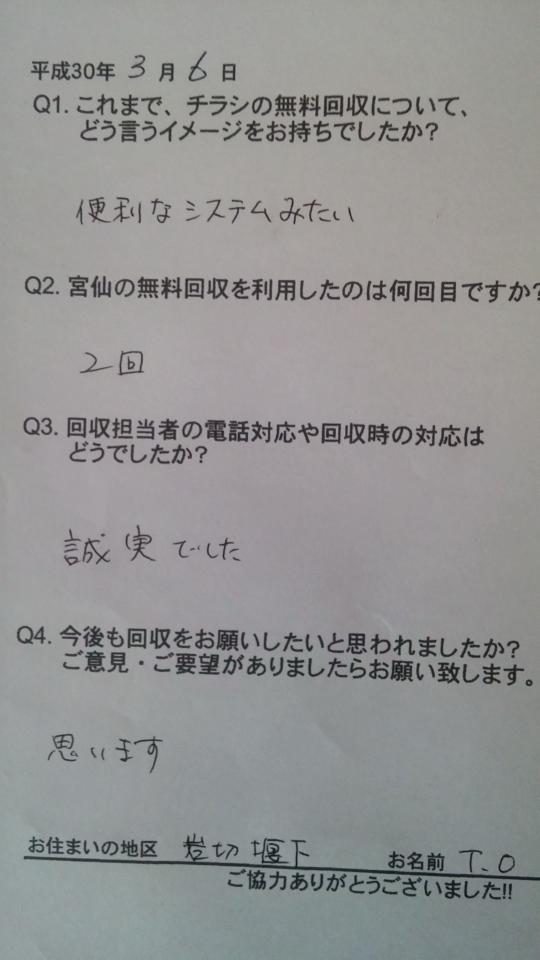 平成30年 3月 6日
Q1. これまで、チラシの無料回収について、
どう言うイメージをお持ちでしたか?
便利なシステムみたい
Q2. 宮仙の無料回収を利用したのは何回目ですか?
2回
Q3. 回収担当者の電話対応や回収時の対応は
どうでしたか?
誠実でした
Q4. 今後も回収をお願いしたいと思われましたか?
ご意見・ご要望がありましたらお願い致します。
思います
お住まいの地区 岩切堰下 お名前 T.O
ご協力ありがとうございました!!